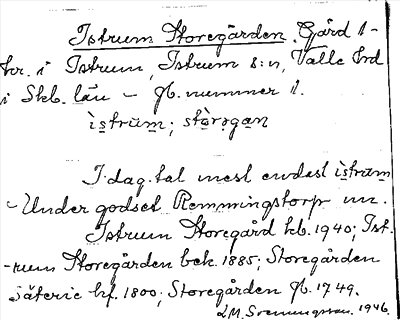 Istrum Storegården. Gård 1-
kr. i Istrum, Istrum s:n, Valle hrd
i Skb. län – jb. nummer 1.
ìstrùm; stò̩rgan
I dag. tal mest endast ìstrùm
- Under godset Remmingstorp nu.
Istrum Storegård kb. 1940; Ist-
-rum Storegården bek. 1885; Storegården
säterie hf. 1800; Storegården jb. 1749.
1946.